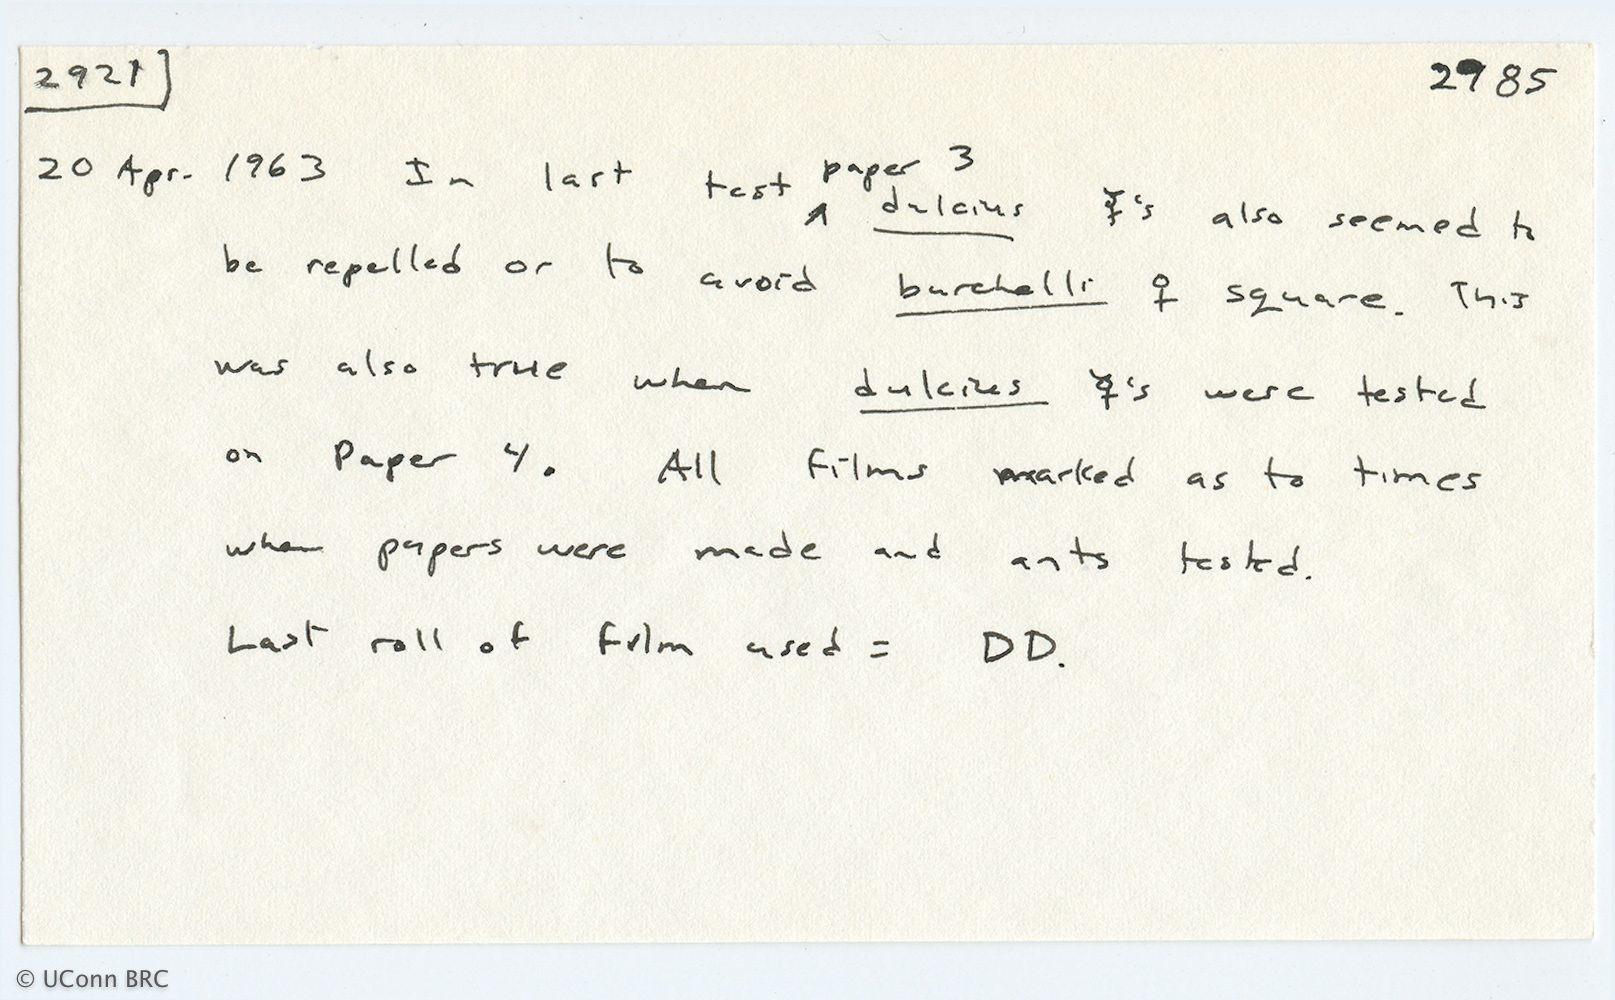 2921]
2985
20 Apr. 1963 In last test paper 3 dulcius ☿'s also seemed to
be repelled or to avoid burchelli ♀ square. This
was also true when dulcius ☿'s were tested
on Paper 4. All films marked as to times
when papers were made and ants tested.
Last roll of film used = DD.
© UConn BRC